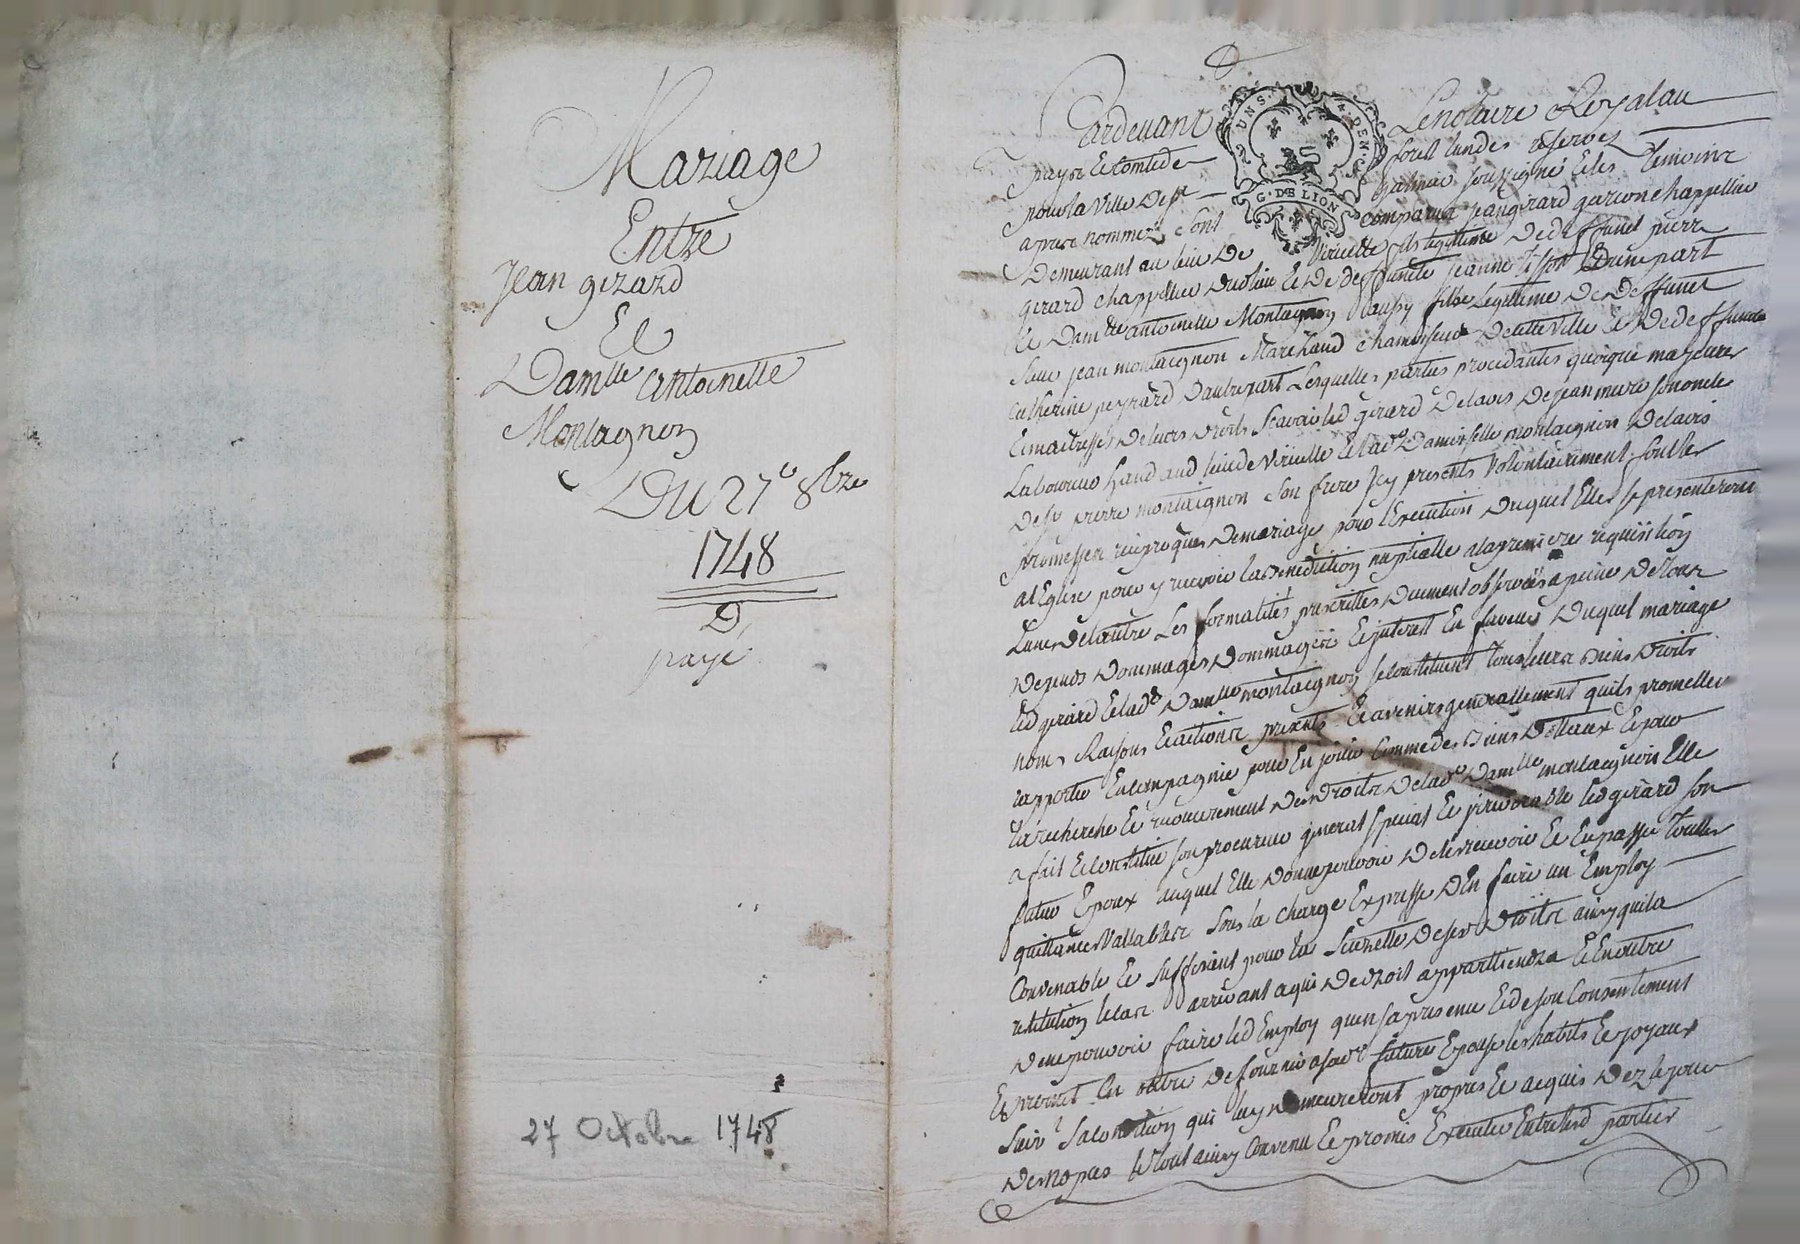 Mariage
Entre
Jean girard
Et
Damlle Antoinette
Montagnon
Du 27e 8bre
1748
D
payé
27 Octobre 1748
UN S. DEN.
G. DE LION
Pardevant Le notaire Royal au
pays et Comté de forest lundes reservez
pour la ville de st soussigné et les temoins
apres nommez sont comparus jean girard garçon chappellier
Demeurant au lieu de Viricelle fils legittime de deffunct pierre
girard chappellier dud lieu et de deffuncte jeanne D'une part
Et Damlle antoinette Montagnon fille Legittime de Deffunct
Sieur jean montaignon Marchand chamoiseur de cette Ville et de deffuncte
Catherine peyrard D'autre part Lesquelles parties procedantes quoique majeures
et maitresses de leurs droits Scavoir led girard de lavis de jean mure son oncle
Laboureur dud lieu de Viricelle et lade Damoiselle montaignon de lavis
de sr pierre montaignon Son frere Icy presents Volontairement font les
promesses reciproques de mariage pour l'Execution duquel Elles se presenteront
a l'Eglise pour y recevoir la Benediction nuptialle a la premiere requisition
Lune de lautre Les formalités prescrittes duement observées a peine de tous
depends dommages et interest En faveur Duquel mariage
led girard et lade Damlle montaignon se constituent tous leurs Biens droits
noms Raisons et actions presents et avenirs generallement quils promettent
rapporter En compagnie pour En joüir Comme des Biens Dottaux et pour
la recherche et recouvrement des Droits de lade Damlle montaignon Elle
a fait et constitué son procureur general special et irrevocable led girard son
futur Epoux auquel Elle donne pouvoir de les recevoir et En passer toutes
quittances Vallables Sous la charge Expresse d'En faire un Employ
Convenable et suffisant pour la Seuretté de ses Droits ainsy qui la
restitution le cas arrivant a qui de droit appartiendra et En outre
de ne pouvoir faire led Employ quen sa presence et de son Consentement
Et promet En outre de fournir a sade future Epouse les habits et joyaux
suivt sa Condition qui luy demeureront propres et acquis dez le jour
des nopces le tout ainsy Convenu et promis Executer Entre lesd parties